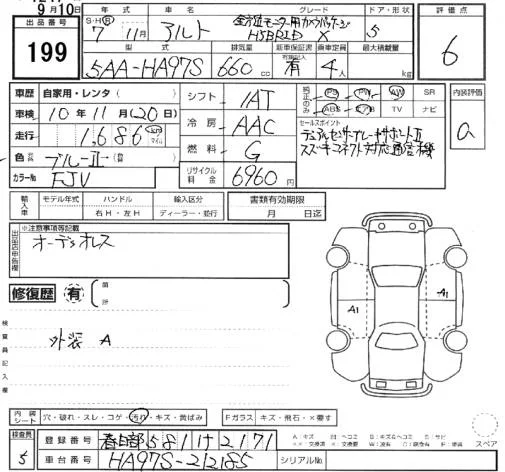 9月10日
出品番号
199
年式
S・H・R
7年 11月
車名
アルト
グレード
全方位モニター用カメラパッケージ
HYBRID X
ドア・形状
5
評価点
6
型式
5AA-HA97S
排気量
660cc
新車保証書
有
乗車定員
4人
最大積載量
kg
車歴 自家用・レンタ( )
車検 10年11月(20日)
走行 1,686 km マイル
色 ブルーⅡ
カラーNo FJV
シフト IAT
冷房 AAC
燃料 G
リサイクル料金 6960円
純正のみ PS PW AW SR
ABS エアB TV ナビ
内装評価
a
セールスポイント
デュアルセンサーブレーキサポートⅡ
スズキコネクト対応通信機
輸入車
モデル年式 ハンドル 輸入区分
右H・左H ディーラー・並行
書類有効期限
月 日迄
出品店申告欄
※注意事項等記載
オーディオレス
修復歴 有
箇所
検査員記入欄
外装 A
A1
A1
内装シート 穴・破れ・スレ・コゲ・汚れ・キズ・黄ばみ
Fガラス キズ・飛石・×要す
検査員
5
登録番号 春日部581け2171
車台番号 HA97S-212185
シリアルNo
スペア